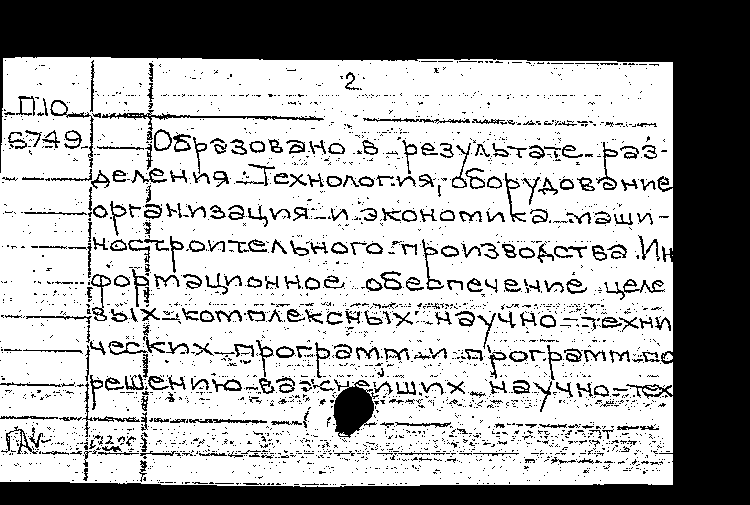 2
П10
6749 Образовано в результате раз-
деления: Технология, оборудование
организация и экономика маши-
ностроительного производства. Ин
формационное обеспечение целе
вых комплексных научно-техни
ческих программ и программ по
решению важнейших научно-тех